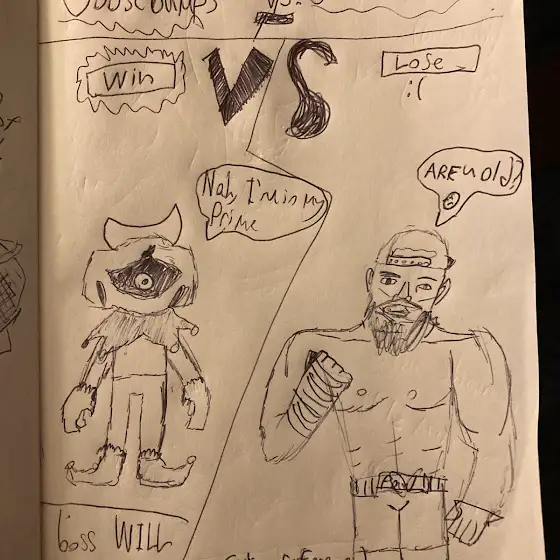 VS.
Win
VS
Lose
:(
Nah, I'm in my
Prime
ARE u old??
boss WILL